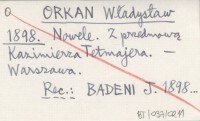 O ORKAN Władysław
1898. Nowele. Z przedmową
Kazimierza Tetmajera. —
Warszawa.
Rec.: BADENI J. 1898...